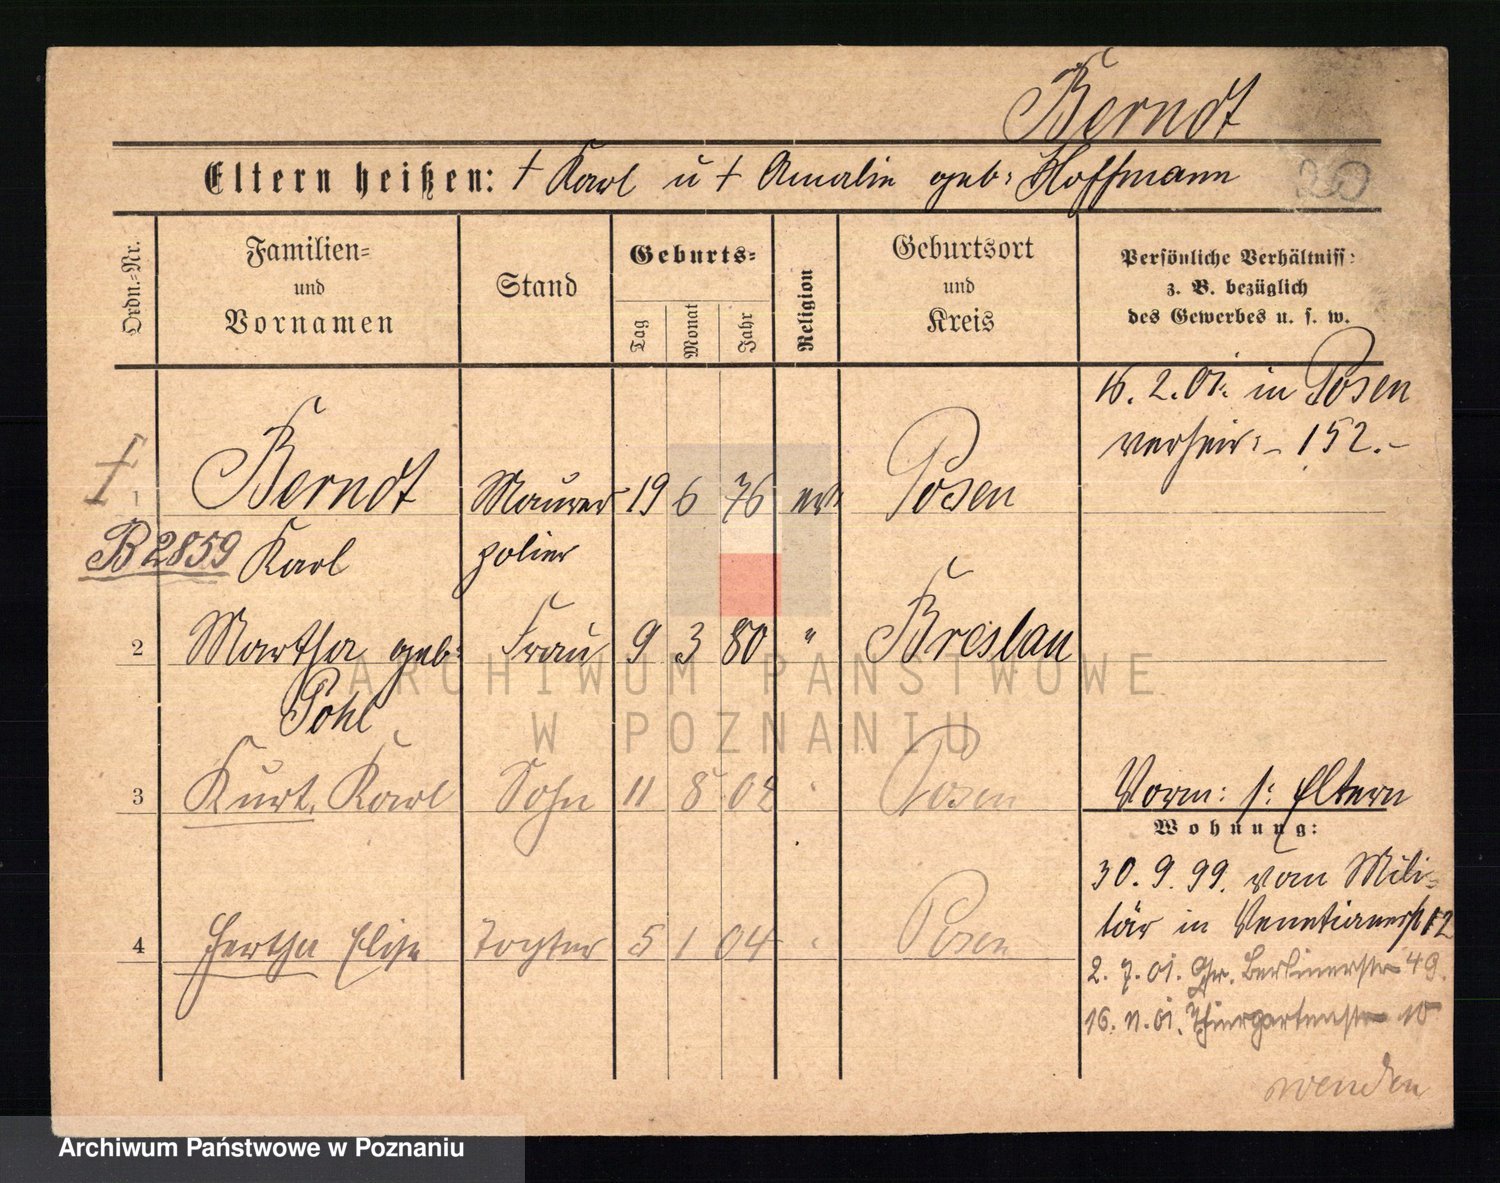 Berndt
Eltern heißen: † Karl u † Amalie geb: Hoffmann
Ordn.-Nr.
Familien-
und
Vornamen
Stand
Geburts-
Tag
Monat
Jahr
Religion
Geburtsort
und
Kreis
Persönliche Verhältniss:
z. B. bezüglich
des Gewerbes u. s. w.
16. 2. 01. in Posen
verheir: – 152. –
† 1 Berndt Maurer 19 6 76 ev. Posen
B 2859 Karl polier
2 Martha geb: Frau 9 3 80 " Breslau
Pohl
3 Kurt, Karl Sohn 11 8 02 " Posen
Vorm: s: Eltern
Wohnung:
30. 9. 99. vom Mili-
tär in Venetianerstr 12
4 Hertha Elise Tochter 5 1 04 " Posen
2. 7. 01. Gr. Berlinerstr 49.
16. 11. 01. Thiergartenstr 10
wenden
ARCHIWUM PAŃSTWOWE
W POZNANIU
Archiwum Państwowe w Poznaniu